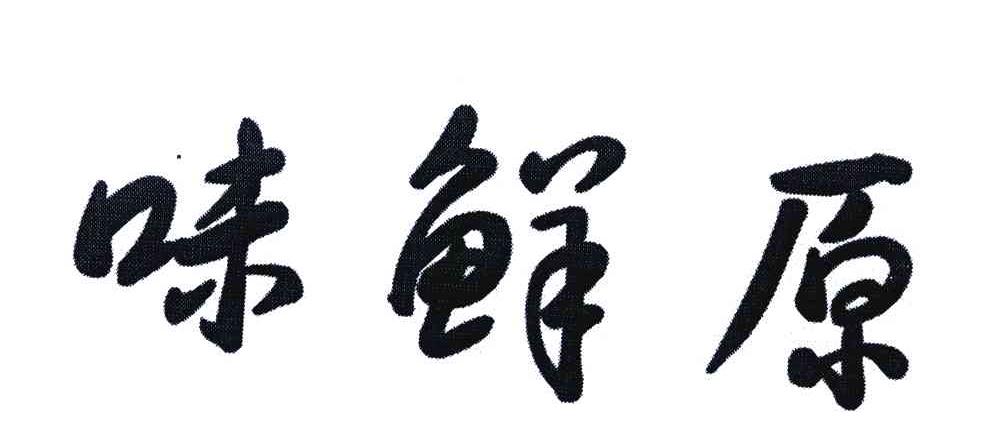 味鲜原